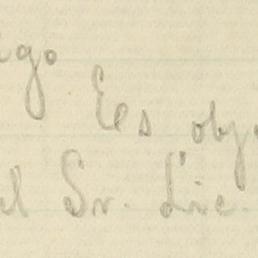 igo.
Es obj
al Sr. Lic.